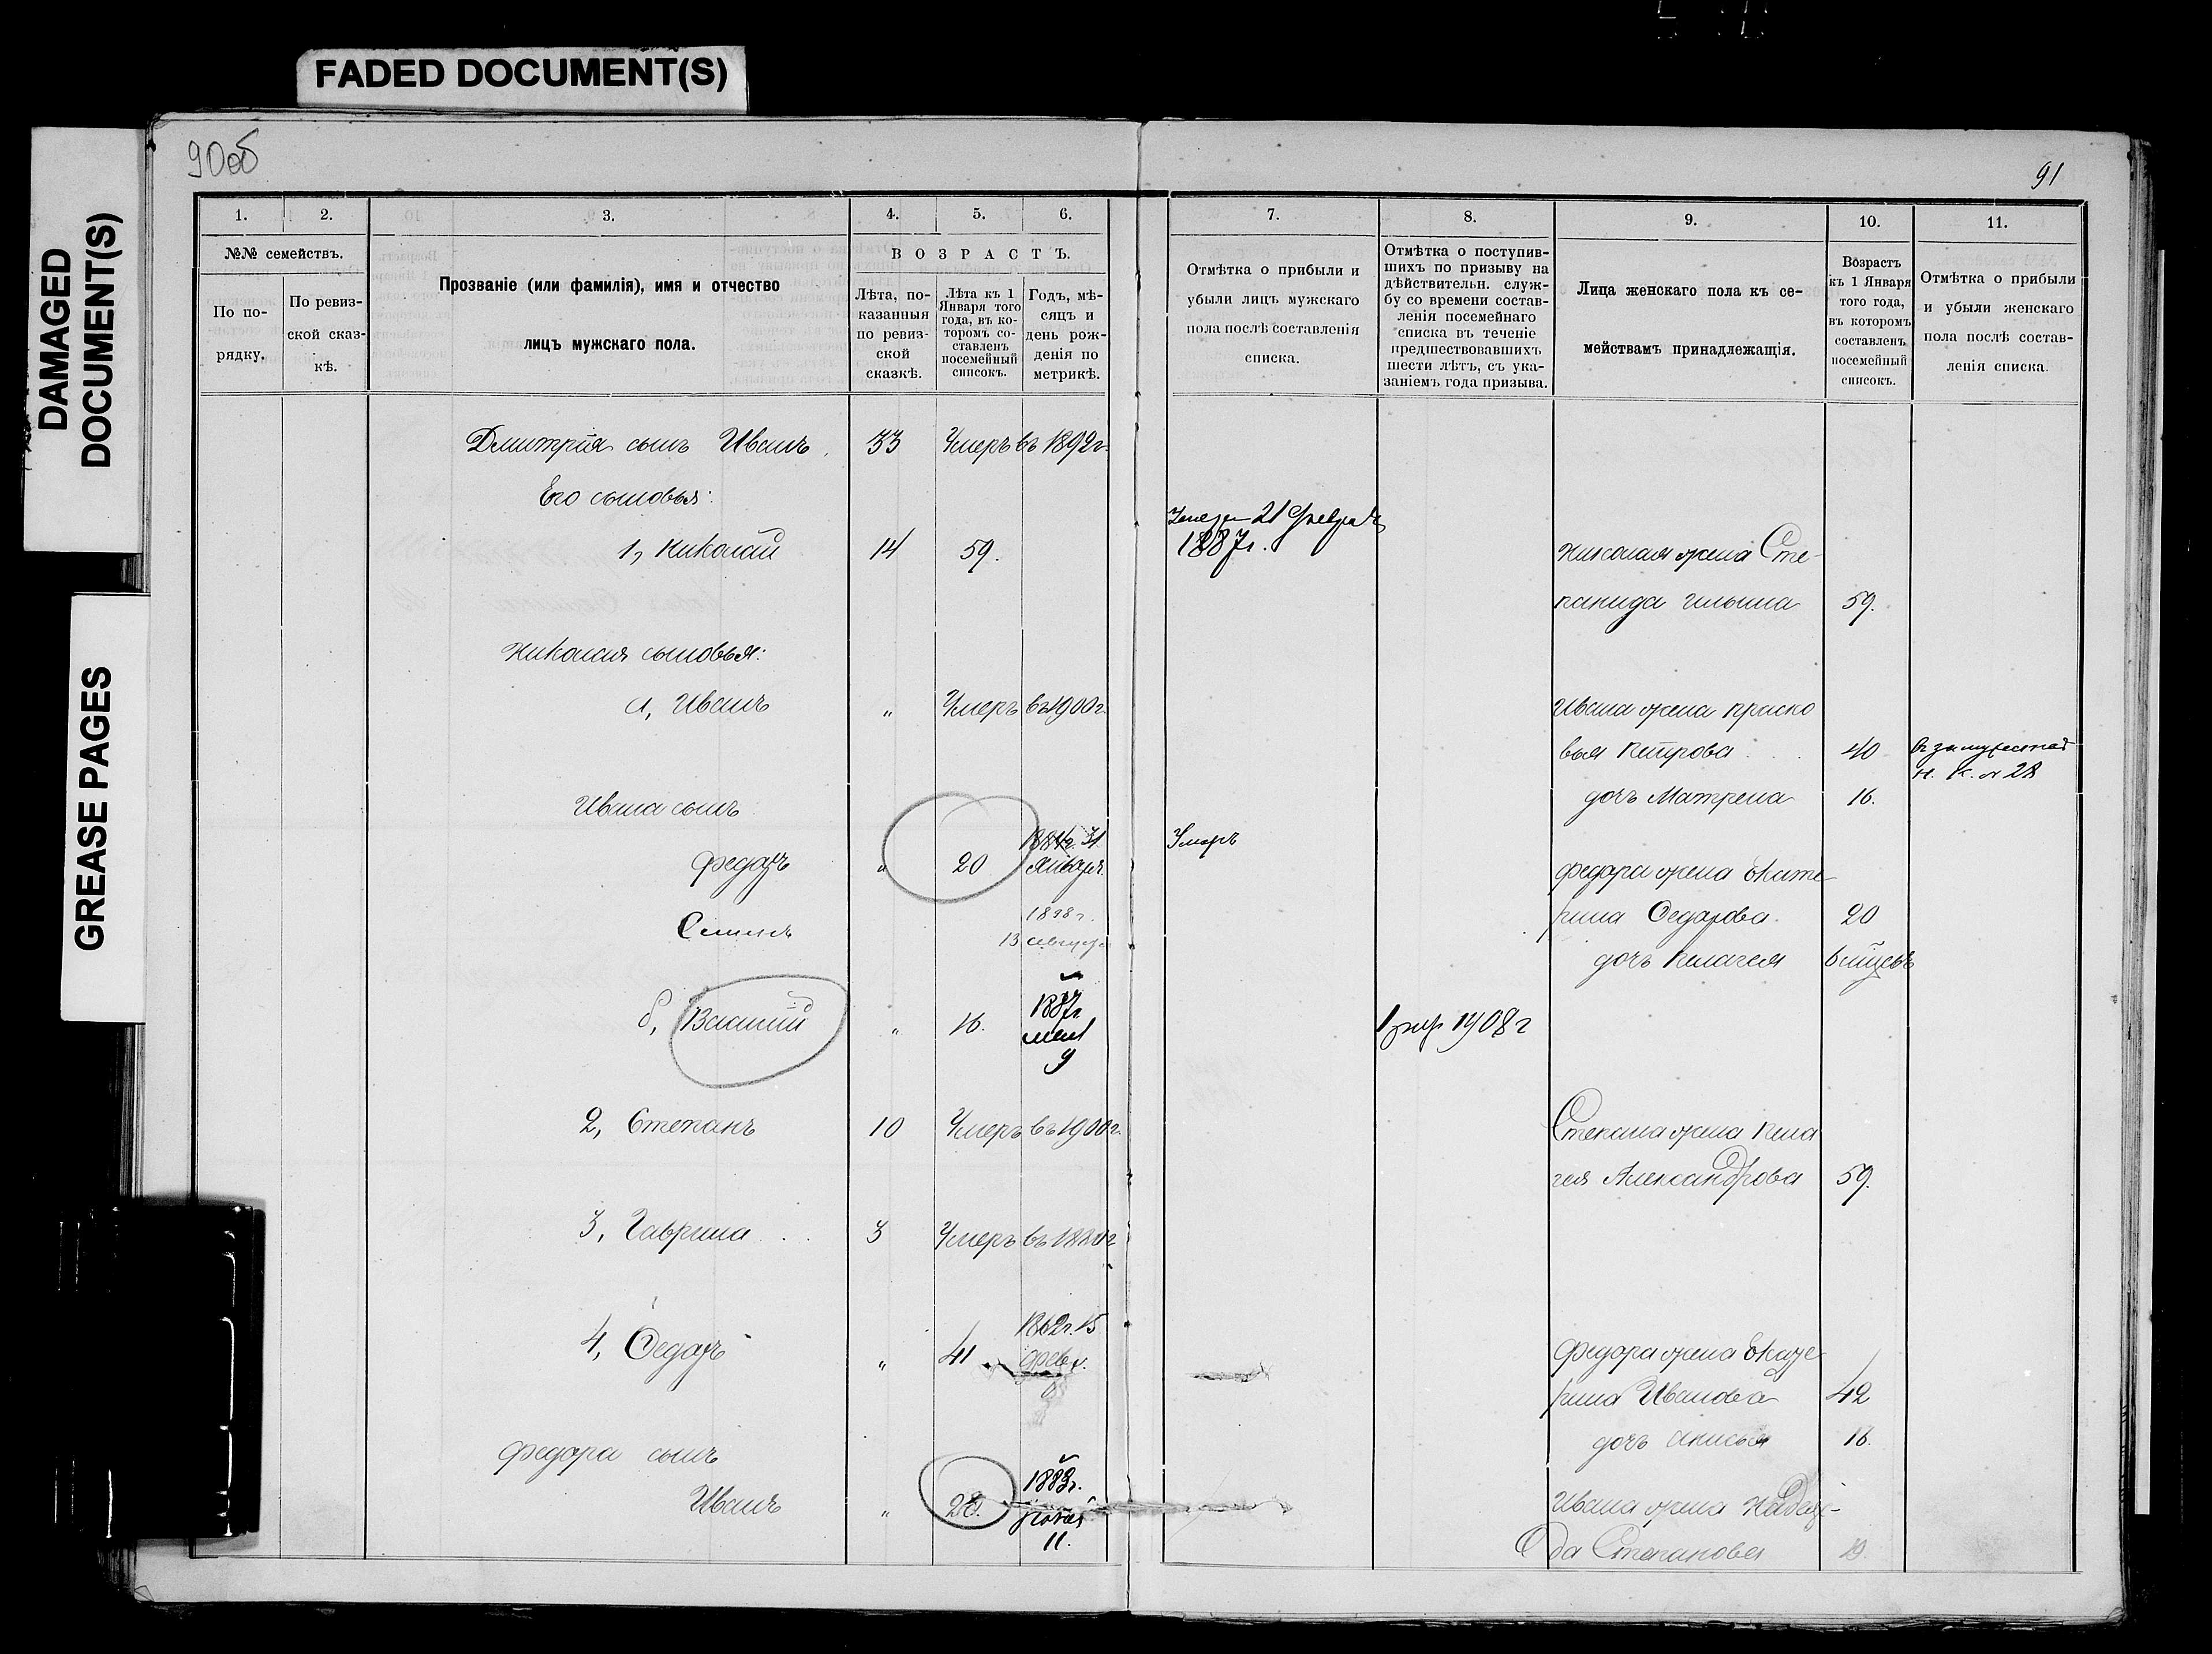 FADED DOCUMENT(S)
DAMAGED
DOCUMENT(S)
GREASE PAGES
90об
1.
2.
3.
4.
5.
6.
№№ семействъ.
По по-
рядку.
По ревиз-
ской сказ-
кѣ.
Прозваніе (или фамилія), имя и отчество
лицъ мужскаго пола.
ВОЗРАСТЪ.
Лѣта, по-
казанныя
по ревиз-
ской
сказкѣ.
Лѣта къ 1
Января того
года, въ ко-
торомъ со-
ставленъ
посемейный
списокъ.
Годъ, мѣ-
сяцъ и
день рож-
денія по
метрикѣ.
Дмитрія сынъ Иванъ 33 Умеръ въ 1892г.
Его сыновья:
1, Николай 14 59.
Николая сыновья:
а, Иванъ " Умеръ въ 1900г.
Ивана сынъ
Федоръ " 20 31
Января
Семенъ 1898г.
13
б, Василій " 16. 1887г
9
2, Степанъ 10 Умеръ въ 1900г.
3, Гаврила 3 Умеръ въ
4, Ѳедоръ " 41 1862г. 15
февр.
Федора сынъ
Иванъ " 1883г.
11.
91
7.
8.
9.
10.
11.
Отмѣтка о прибыли и
убыли лицъ мужскаго
пола послѣ составленія
списка.
Отмѣтка о поступив-
шихъ по призыву на
дѣйствительн. служ-
бу со времени состав-
ленія посемейнаго
списка въ теченіе
предшествовавшихъ
шести лѣтъ, съ ука-
заніемъ года призыва.
Лица женскаго пола къ се-
мействамъ принадлежащія.
Возрастъ
къ 1 Января
того года,
въ которомъ
составленъ
посемейный
списокъ.
Отмѣтка о прибыли
и убыли женскаго
пола послѣ состав-
ленія списка.
21
Николая жена Сте-
панида Ильина 59.
Ивана жена Праско
вья Петрова 40
дочь Матрена 16.
Умеръ
Федора жена Екате
рина Ѳедорова 20
дочь Пелагея
1908г
Степана жена Пела
гея Александрова 59.
Федора жена Екате
рина Иванова 42
дочь Анисья 16.
Ивана жена Надеж-
да Степанова 19